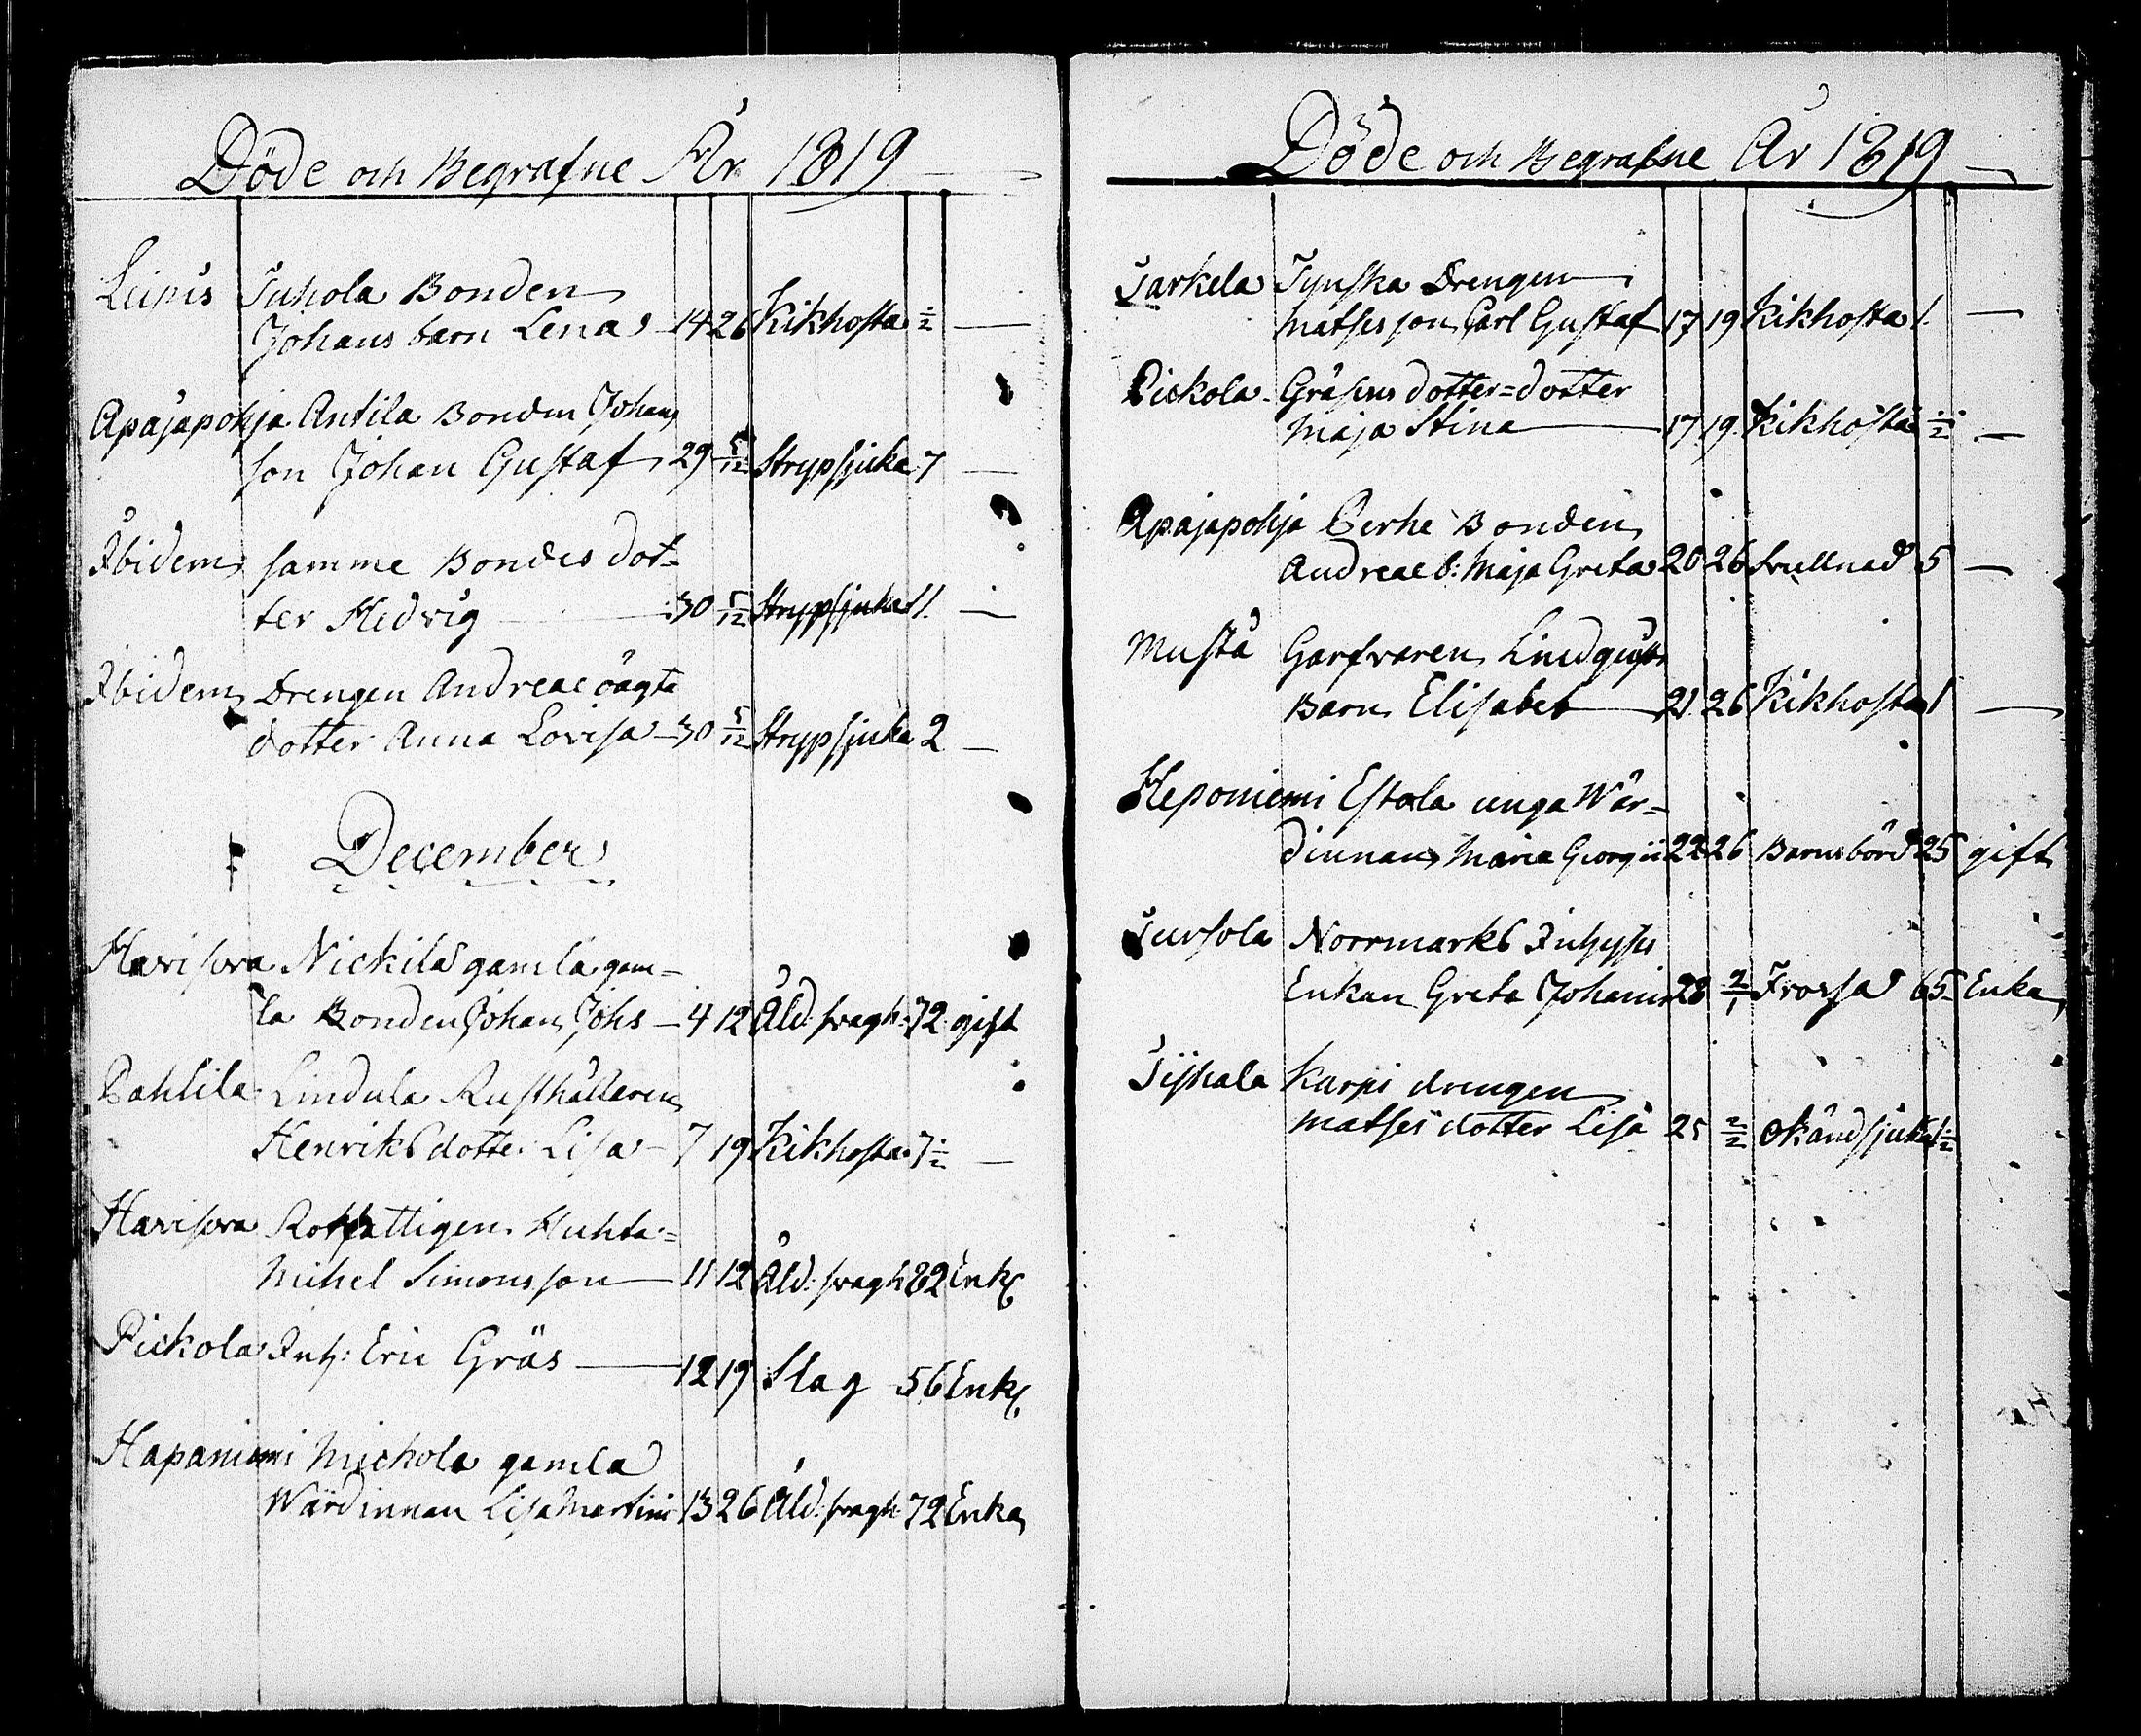 Döde och Begrafne År 1819
Leinis Juhola Bonden
Johans barn Lena 14 26 Kikhosta ½ —
Apajapohja Antila Bonden Johans
son Johan Gustaf 29 5/12 Strypsjuka 7 —
Ibidem samme Bondes dot-
ter Hedvig 30 5/12 Strypsjuka 11. —
Ibidem Drengen Andreae oägta
dotter Anna Lovisa 30 5/12 Strypsjuka 2 —
December
Havisova Nickila gamla gam-
la Bonden Johan Johs 4 12 Åld: svagh: 72 gift
Pahlila Lindula Rusthållaren
Henriks dotter Lisa 7 19 Kikhosta 7 ½ —
Havisova Rotfattigen Huhta=
Mihel Simonsson 11 12 Åld: svagh 82 Enk
Pickola Inh: Eric Gräs 12 19 Slag 56 Enk
Hapaniemi Mickola gamla
Wärdinnan Lisa Martini 13 26 Åld: svagh: 72 Enka
Döde och Begrafne År 1819
Sarkela Tynska Drengen
Matses son Carl Gustaf 17 19 Kikhosta 1. —
Pickola Gräsens dotter=dotter
Maja Stina 17 19 Kikhosta ½ —
Apajapohja Perhe Bonden
Andreae d: Maja Greta 20 26 Svullnad 5 —
Musta Garfvaren Lindqvist
Barn Elisabet 21 26 Kikhosta 1 —
Heponiemi Estola unga Wär=
dinnan Maria Georgii 22 26 Barnsbörd 25 gift
Sursola Norrmarks Inhyses
Enkan Greta Johanis 28 2/1 Frossa 65 Enka
Karpi drengen
Matses dotter Lisa 25 2/2 Okänd sjuka ½